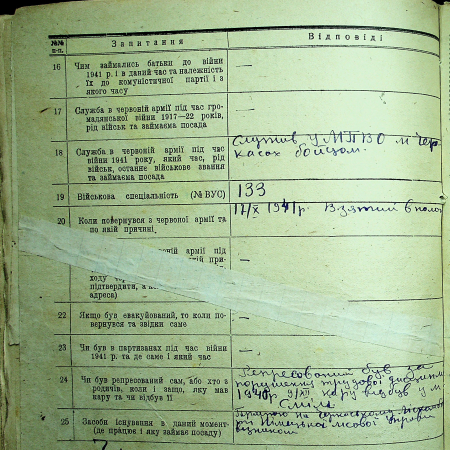 №№ п-п. Запитання Відповіді
16 Чим займались батьки до війни
1941 р. і в даний час та належність
їх до комуністичної партії і з
якого часу
—
17 Служба в червоній армії під час гро-
мадянської війни 1917—22 років,
рід військ та займаєма посада
—
18 Служба в червоній армії під час
війни 1941 року, який час, рід
військ, останнє військове звання
та займаєма посада
Служив у МПВО м Чер
касах бойцом.
19 Військова спеціальність (№ ВУС)
133
20 Коли повернувся з червоної армії та
по якій причині
17/X 1941 р. Взятий в полон
червоній армії під
ходу
підтвердити,
адреса)
—
22 Якщо був евакуйований, то коли по-
вернувся та звідки саме
—
23 Чи був в партизанах під час війни
1941 р. та де саме і який час
—
24 Чи був репресований сам, або хто з
родичів, коли і защо, яку мав
кару та чи відбув її
Репресований був за
порушення трудової дисципліни
1940р 9/XII кару відбув у м
Сміла
25 Засоби існування в даний момент
(де працює і яку займає посаду)
Працюю на